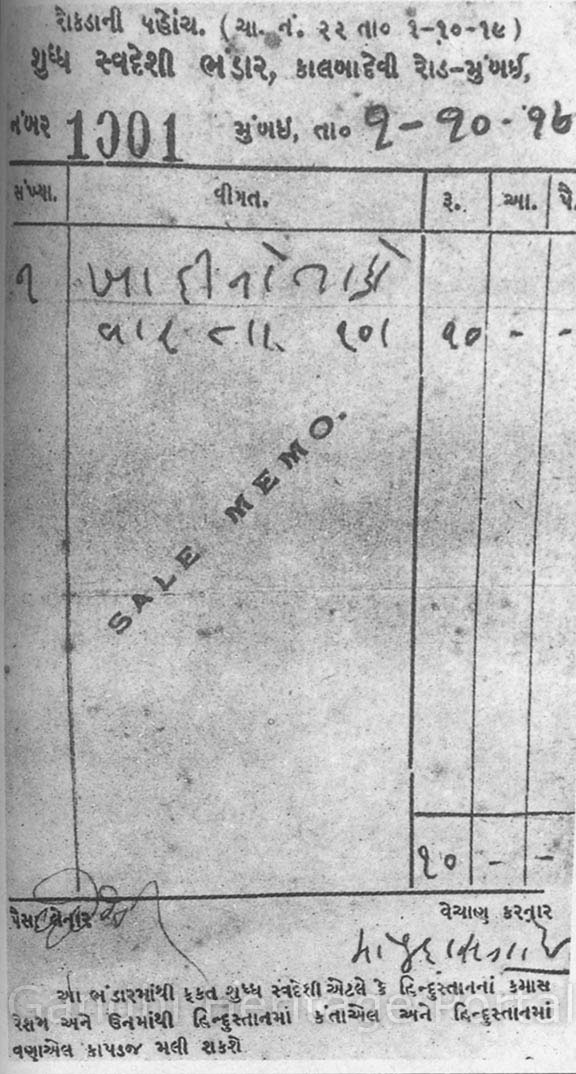 રોકડાની પહોંચ. (ચા. નં. ૨૨ તા૦ ૧-૧૦-૧૯)
શુધ્ધ સ્વદેશી ભંડાર, કાલબાદેવી રોડ-મુંબઈ,
નંબર 1001 મુંબઇ, તા૦ ૧-૧૦-૧૯
સંખ્યા. વીગત. રૂ. આ. પૈ.
૧ ખાદીનો તાકો
વાર ના. ૧૦। ૧૦ - -
SALE MEMO.
૧૦ - -
પૈસા લેનાર વેચાણ કરનાર
આ ભંડારમાંથી ફકત શુધ્ધ સ્વદેશી એટલે કે હિન્દુસ્તાનનાં કપાસ
રેશમ અને ઉનમાંથી હિન્દુસ્તાનમાં કંતાએલ અને હિન્દુસ્તાનમાં
વણાએલ કાપડજ મલી શકશે
Gandhi Heritage Portal